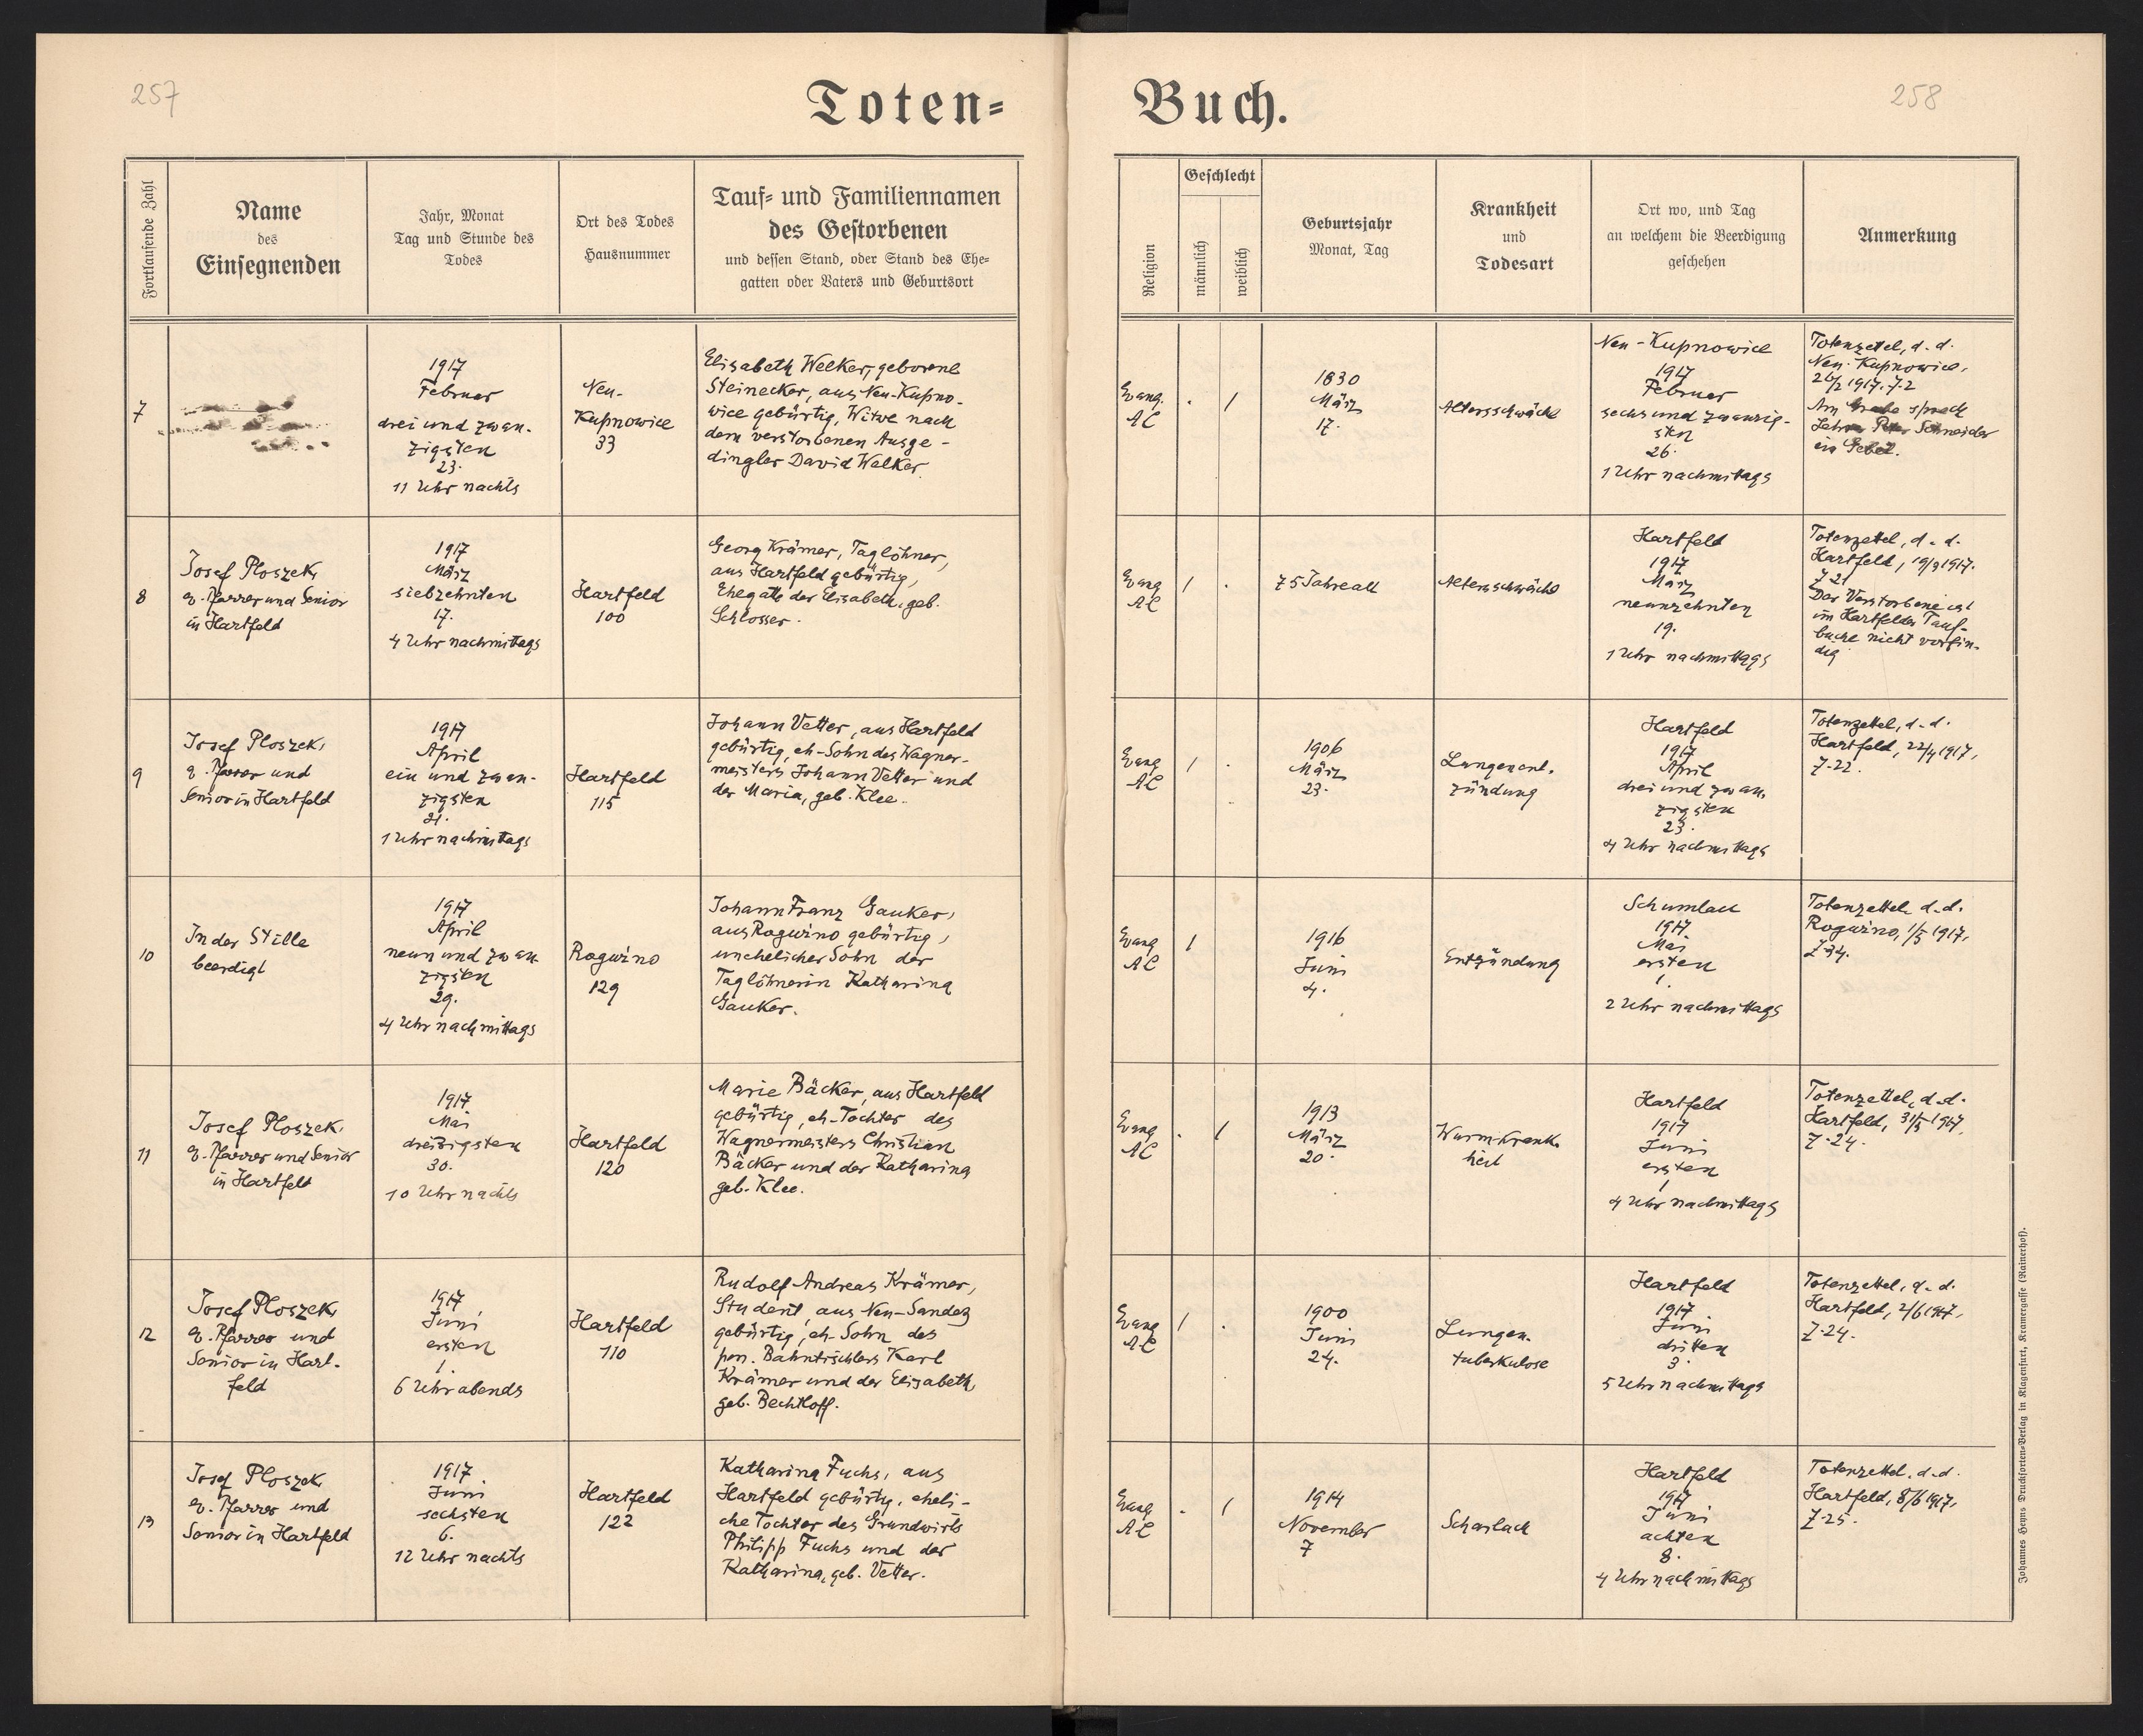 257
Toten=
Fortlaufende Zahl
Name
des
Einsegnenden
Jahr, Monat
Tag und Stunde des
Todes
Ort des Todes
Hausnummer
Tauf= und Familiennamen
des Gestorbenen
und dessen Stand, oder Stand des Ehe=
gatten oder Vaters und Geburtsort
7
1917
Februar
drei und zwan-
zigsten
23.
11 Uhr nachts
Neu-
Kupnowice
33
Elisabeth Welker, geborene
Steinecker, aus Neu-Kupno-
wice gebürtig, Witwe nach
dem verstorbenen Ausge-
dingler David Welker
8
Josef Ploszek,
ev. Pfarrer und Senior
in Hartfeld
1917
März
siebzehnten
17.
4 Uhr nachmittags
Hartfeld
100
Georg Krämer, Taglöhner,
aus Hartfeld gebürtig,
Ehegatte der Elisabeth, geb.
Schlosser.
9
Josef Ploszek,
ev. Pfarrer und
Senior in Hartfeld
1917
April
ein und zwan-
zigsten
21.
1 Uhr nachmittags
Hartfeld
115
Johann Vetter, aus Hartfeld
gebürtig, eh. Sohn des Wagner-
meisters Johann Vetter und
der Maria, geb. Klee.
10
In der Stille
beerdigt
1917
April
neun und zwan-
zigsten
29.
4 Uhr nachmittags
Roguzno
129
Johann Franz Gauker,
aus Roguzno gebürtig,
unehelicher Sohn der
Taglöhnerin Katharina
Gauker.
11
Josef Ploszek,
ev. Pfarrer und Senior
in Hartfeld
1917
Mai
dreißigsten
30.
10 Uhr nachts
Hartfeld
120
Marie Bäcker, aus Hartfeld
gebürtig, eh. Tochter des
Wagnermeisters Christian
Bäcker und der Katharina
geb. Klee.
12
Josef Ploszek,
ev. Pfarrer und
Senior in Hart-
feld
1917
Juni
ersten
1.
6 Uhr abends
Hartfeld
110
Rudolf Andreas Krämer,
Student, aus Neu-Sandez
gebürtig, eh. Sohn des
pen. Bahntischlers Karl
Krämer und der Elisabeth,
geb. Bechtloff.
13
Josef Ploszek,
ev. Pfarrer und
Senior in Hartfeld
1917
Juni
sechsten
6.
12 Uhr nachts
Hartfeld
122
Katharina Fuchs, aus
Hartfeld gebürtig, eheli-
che Tochter des Grundwirts
Philipp Fuchs und der
Katharina, geb. Vetter.
258
Buch.
Religion
Geschlecht
männlich
weiblich
Geburtsjahr
Monat, Tag
Krankheit
und
Todesart
Ort wo, und Tag
an welchem die Beerdigung
geschehen
Anmerkung
Evang.
AC
. /
1830
März
17.
Altersschwäche
Neu-Kupnowice
1917
Februar
sechs und zwanzig-
sten
26.
1 Uhr nachmittags
Totenzettel, d. d.
Neu-Kupnowice,
26/2 1917. Z.2
Am Grabe sprach
Lehrer Peter Schneider
ein Gebet.
Evang
AC
/ .
75 Jahre alt
Altersschwäche
Hartfeld
1917
März
neunzehnten
19.
1 Uhr nachmittags
Totenzettel, d. d.
Hartfeld, 19/3 1917.
Z-21
Der Verstorbene ist
im Hartfelder Tauf-
buche nicht vorfin-
dig
Evang
AC
/ .
1906
März
23.
Lungenent-
zündung
Hartfeld
1917
April
drei und zwan-
zigsten
23.
4 Uhr nachmittags
Totenzettel, d. d.
Hartfeld, 22/4 1917,
Z-22.
Evang
AC
/
1916
Juni
4.
Entzündung
Schumlau
1917.
Mai
ersten
1.
2 Uhr nachmittags
Totenzettel, d. d.
Roguzno, 1/5 1917,
Evang
AC
. /
1913
März
20.
Wurmkrank-
heit
Hartfeld
1917
Juni
ersten
1
4 Uhr nachmittags
Totenzettel, d. d.
Hartfeld, 31/5 1917,
Z-24.
Evang
AC
/ .
1900
Juni
24.
Lungen-
tuberkulose
Hartfeld
1917
Juni
dritten
3.
5 Uhr nachmittags
Totenzettel, d. d.
Hartfeld, 2/6 1917,
Z-24.
Evang
AC
. /
1914
November
7
Scharlach
Hartfeld
1917
Juni
achten
8.
4 Uhr nachmittags
Totenzettel, d. d.
Hartfeld, 8/6 1917,
Z-25.
Johannes Heyns Drucksorten=Verlag in Klagenfurt, Kramergasse (Rainerhof).